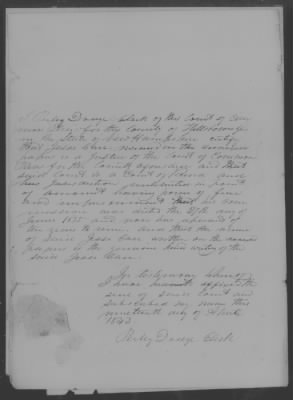 I Perley Dodge clerk of the Court of Com
mon Pleas for the County of Hillsborough
in the State of New Hampshire certify
that Jesse Carr named in the
paper is a Justice of the Court of Common
Pleas for the County aforesaid and that
said Court is a Court of Record and
has jurisdiction in point
of amount having power of fine
and imprisonment that his com
mission was dated the day of
June and has
and that the name
of said Jesse Carr written on the
paper is the genuine hand writing of the
said Jesse Carr
In testimony whereof
I have hereunto affixed the
seal of said Court and
subscribed my name this
nineteenth day of April
1843
Perley Dodge Clerk